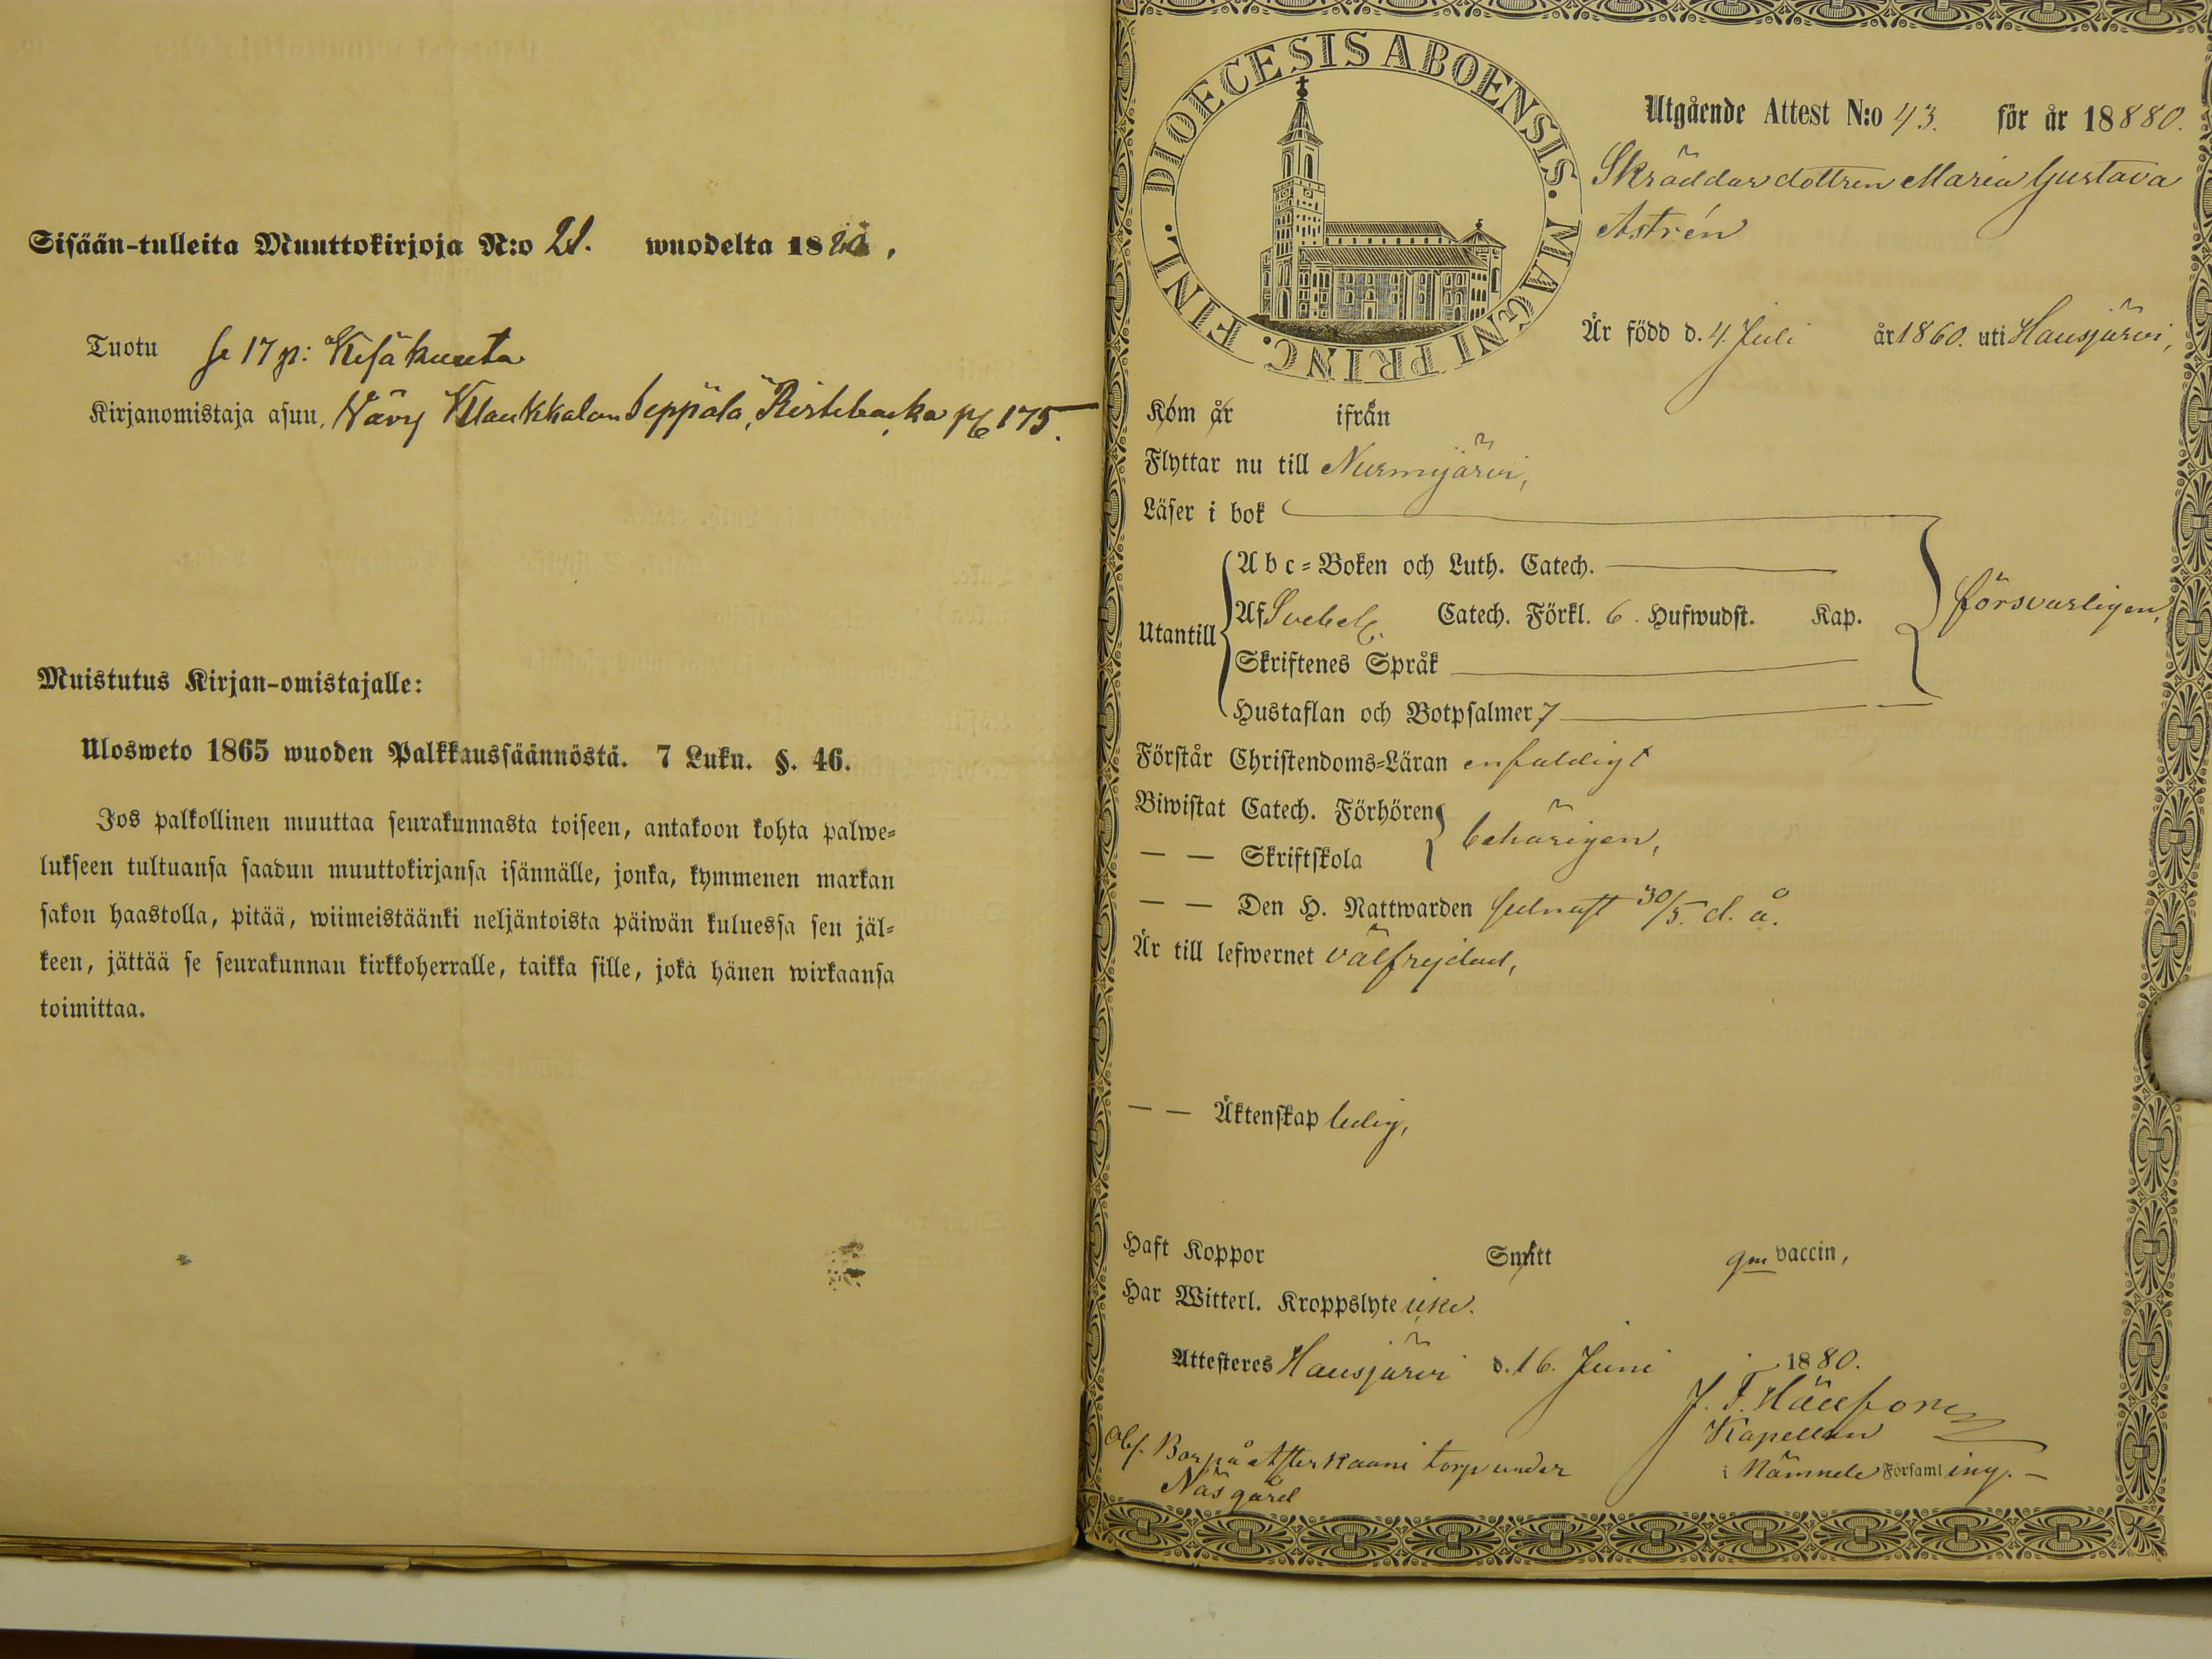 Sisään-tulleita Muuttokirjoja N:o 21. wuodelta 1880,
Tuotu se 17 p: Kesäkuuta
Kirjanomistaja asuu, Klaukkalan Seppälä, 175.
Muistutus Kirjan-omistajalle:
Ulosweto 1865 wuoden Palkkaussäännöstä. 7 Luku. §. 46.
Jos palkollinen muuttaa seurakunnasta toiseen, antakoon kohta palwe-
lukseen tultuansa saadun muuttokirjansa isännälle, jonka, kymmenen markan
sakon haastolla, pitää, wiimeistäänki neljäntoista päiwän kuluessa sen jäl-
keen, jättää se seurakunnan kirkkoherralle, taikka sille, joka hänen wirkaansa
toimittaa.
DIOECESIS ABOENSIS. MAGNI PRINC. FINL.
Utgående Attest N:o 43. för år 18880.
Skräddardottren Maria Gustava
Astrén
Är född d. 4. Juli år 1860. uti Hausjärvi,
Kom år ifrån
Flyttar nu till Nurmijärvi,
Läser i bok
Utantill
Abc-Boken och Luth. Catech.
Af Svebel. Catech. Förkl. 6. Hufwudst. Kap.
försvarligen,
Skriftenes Språk
Hustaflan och Botpsalmer 7
Förstår Christendoms-Läran enfaldigt
Biwistat Catech. Förhören
behörigen,
— — Skriftskola
— — Den H. Nattwarden sednast 30/5. d. å.
Är till lefwernet välfrejdad,
— — Äktenskap ledig,
Haft Koppor Smitt gm vaccin,
Har Witterl. Kroppslyte icke.
Attesteres Hausjärvi d. 16. Juni 1880.
J. F.
Kapellan
i Nämnde Församling. —
Obs. Bor på torp under
Näs gård